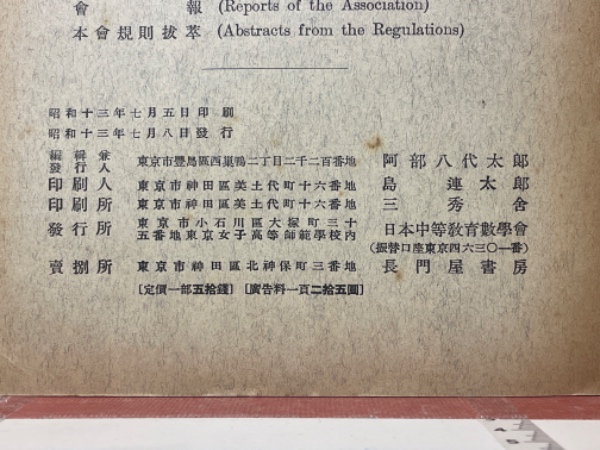 會報 (Reports of the Association)
本會規則抜萃 (Abstracts from the Regulations)
昭和十三年七月五日印刷
昭和十三年七月八日發行
編輯兼發行人 東京市豊島區西巣鴨二丁目二千二百番地 阿部八代太郎
印刷人 東京市神田區美土代町十六番地 島連太郎
印刷所 東京市神田區美土代町十六番地 三秀舍
發行所 東京市小石川區大塚町三十五番地東京女子高等師範學校內 日本中等敎育數學會
(振替口座東京四六三〇一番)
賣捌所 東京市神田區北神保町三番地 長門屋書房
[定價一部五拾錢] [廣告料一頁二拾五圓]